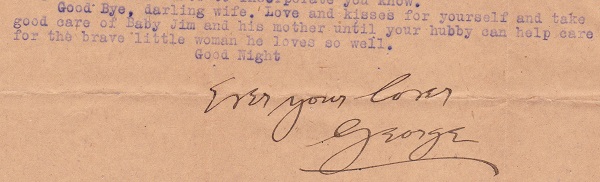 to incorporate you know.
Good Bye, darling wife. Love and kisses for yourself and take
good care of Baby Jim and his mother until your hubby can help care
for the brave little woman he loves so well.
Good Night
Ever your lover
George